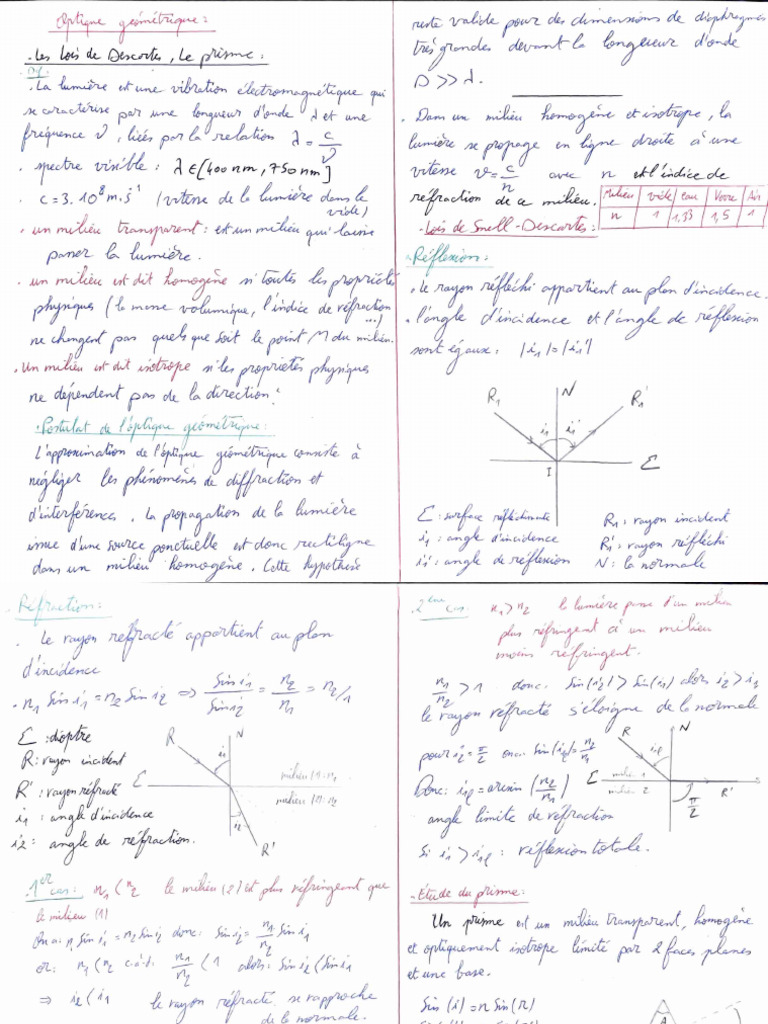 Optique géométrique:
. Les Lois de Descartes, Le prisme:
. Df:
. La lumière est une vibration électromagnétique qui
se caractérise par une longueur d'onde λ et une
fréquence ν, liées par la relation λ = c/ν
. spectre visible: λ ∈ [400nm, 750nm]
. c = 3. 10⁸ m.s⁻¹ (vitesse de la lumière dans le
vide)
. un milieu transparent: est un milieu qui laisse
passer la lumière.
. un milieu est dit homogène si toutes les propriétés
physiques (la masse volumique, l'indice de réfraction
...)
ne changent pas quelsque soit le point M du milieu.
. Un milieu est dit isotrope si les propriétés physiques
ne dépendent pas de la direction.
. Postulat de l'optique géométrique:
L'approximation de l'optique géométrique consiste à
négliger les phénomènes de diffraction et
d'interférences. La propagation de la lumière
issue d'une source ponctuelle est donc rectiligne
dans un milieu homogène. Cette hypothèse
reste valide pour des dimensions de diaphragmes
très grandes devant la longueur d'onde
D >> λ.
. Dans un milieu homogène et isotrope, la
lumière se propage en ligne droite à une
vitesse v = c/n avec n est l'indice de
réfraction de ce milieu.
Milieu | vide | eau | Verre | Air
n | 1 | 1,33 | 1,5 | 1
. Lois de Snell-Descartes:
. Réflexion:
. le rayon réfléchi appartient au plan d'incidence.
. l'angle d'incidence et l'angle de réflexion
sont égaux: |i1| = |i1'|
R1 N R1'
i1 i1'
I Ɛ
Ɛ: surface réfléchissante
i1: angle d'incidence
i1': angle de réflexion
R1: rayon incident
R1': rayon réfléchi
N: la normale
. Réfraction:
. Le rayon refracté appartient au plan
d'incidence
. n1 Sin i1 = n2 Sin i2 ⇒ Sin i1/Sin i2 = n2/n1 = n2/1
Ɛ: dioptre
R: rayon incident
R': rayon réfracté
i1: angle d'incidence
i2: angle de réfraction.
R N
i1
Ɛ milieu (1): n1
milieu (2): n2
i2
R'
. 1er cas: n1 < n2 le milieu (2) est plus réfringeant que
le milieu (1)
On a: n1 Sin i1 = n2 Sin i2 donc: Sin i2 = n1/n2 Sin i1
or: n1 < n2 c.à.d: n1/n2 < 1 alors: Sin i2 < Sin i1
⇒ i2 < i1 le rayon réfracté se rapproche
de la normale.
. 2ème cas: n1 > n2 la lumière passe d'un milieu
plus réfringent à un milieu
moins réfringent.
n1/n2 > 1 donc: Sin(i2) > Sin(i1) alors i2 > i1
le rayon réfracté s'éloigne de la normale
pour i2 = π/2 on a: Sin(il) = n2/n1
Donc: i1l = arcsin (n2/n1)
angle limite de réfraction
Si i1 > i1l: réflexion totale.
R N
il
Ɛ milieu 1
milieu 2 R'
π/2
. Étude du prisme:
Un prisme est un milieu transparent, homogène
et optiquement isotrope limité par 2 faces planes
et une base.
Sin (i) = n Sin(r)
A